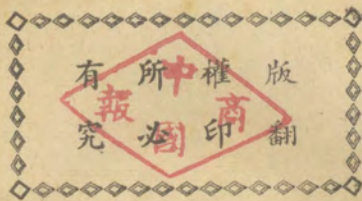 版權所有
翻印必究
中國商報